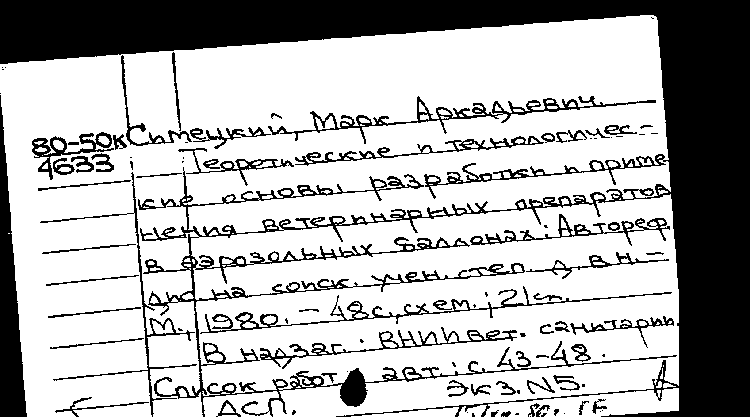 80-50к Симецкий, Марк Аркадьевич.
4633 Теоретические и технологичес-
кие основы разработки и приме-
нения ветеринарных препаратов
в аэрозольных баллонах: Автореф.
дис. на соиск. учен. степ. д. в. н. -
М., 1980. - 48 с., схем.; 21 см.
В надзаг.: ВНИИ вет. санитарии.
Список работ авт.: с. 43-48.
Экз. №5.
ДСП.